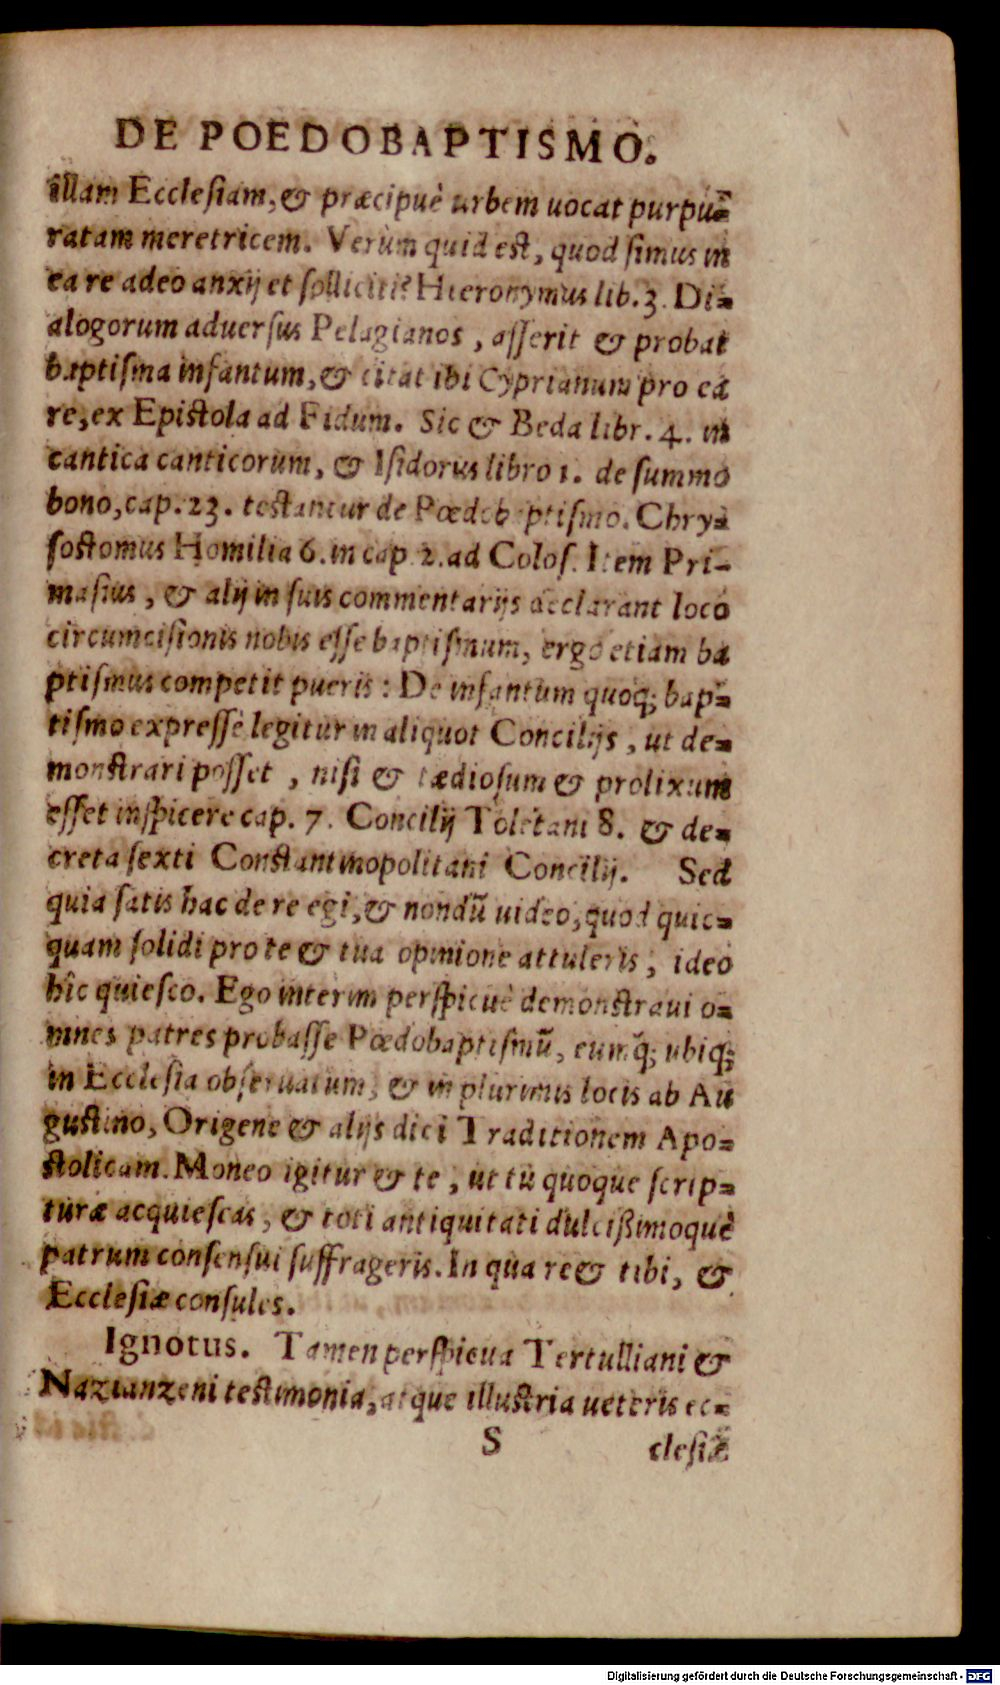 DE POEDOBAPTISMO.
illam Ecclesiam, & præcipuè urbem uocat purpu=
ratam meretricem. Verùm quid est, quod simus in
ea re adeo anxij et solliciti? Hieronymus lib. 3. Di=
alogorum aduersus Pelagianos, asserit & probat
baptisma infantum, & citat ibi Cyprianum pro ea
re, ex Epistola ad Fidum. Sic & Beda libr. 4. in
cantica canticorum, & Isidorus libro 1. de summo
bono, cap. 23. testantur de Pœdobaptismo. Chry=
sostomus Homilia 6. in cap. 2. ad Colos. Item Pri-
masius, & alij in suis commentarijs declarant loco
circumcisionis nobis esse baptismum, ergo etiam ba
ptismus competit pueris: De infantum quoq; bap=
tismo expresse legitur in aliquot Concilijs, ut de=
monstrari posset, nisi & tædiosum & prolixum
esset inspicere cap. 7. Concilij Toletani 8. & de=
creta sexti Constantinopolitani Concilij. Sed
quia satis hac de re egi, & nondū uideo, quod quic=
quam solidi pro te & tua opinione attuleris, ideo
hîc quiesco. Ego interim perspicuè demonstraui o=
mnes patres probasse Pœdobaptismū, eumq́; ubiq;
in Ecclesia obseruatum, & in plurimis locis ab Au
gustino, Origene & alijs dici Traditionem Apo=
stolicam. Moneo igitur & te, ut tu quoque scrip=
turæ acquiescas, & toti antiquitati dulcißimoquè
patrum consensui suffrageris. In qua re & tibi, &
Ecclesiæ consules.
Ignotus. Tamen perspicua Tertulliani &
Nazianzeni testimonia, atque illustria ueteris ec=
S clesiæ
Digitalisierung gefördert durch die Deutsche Forschungsgemeinschaft - DFG